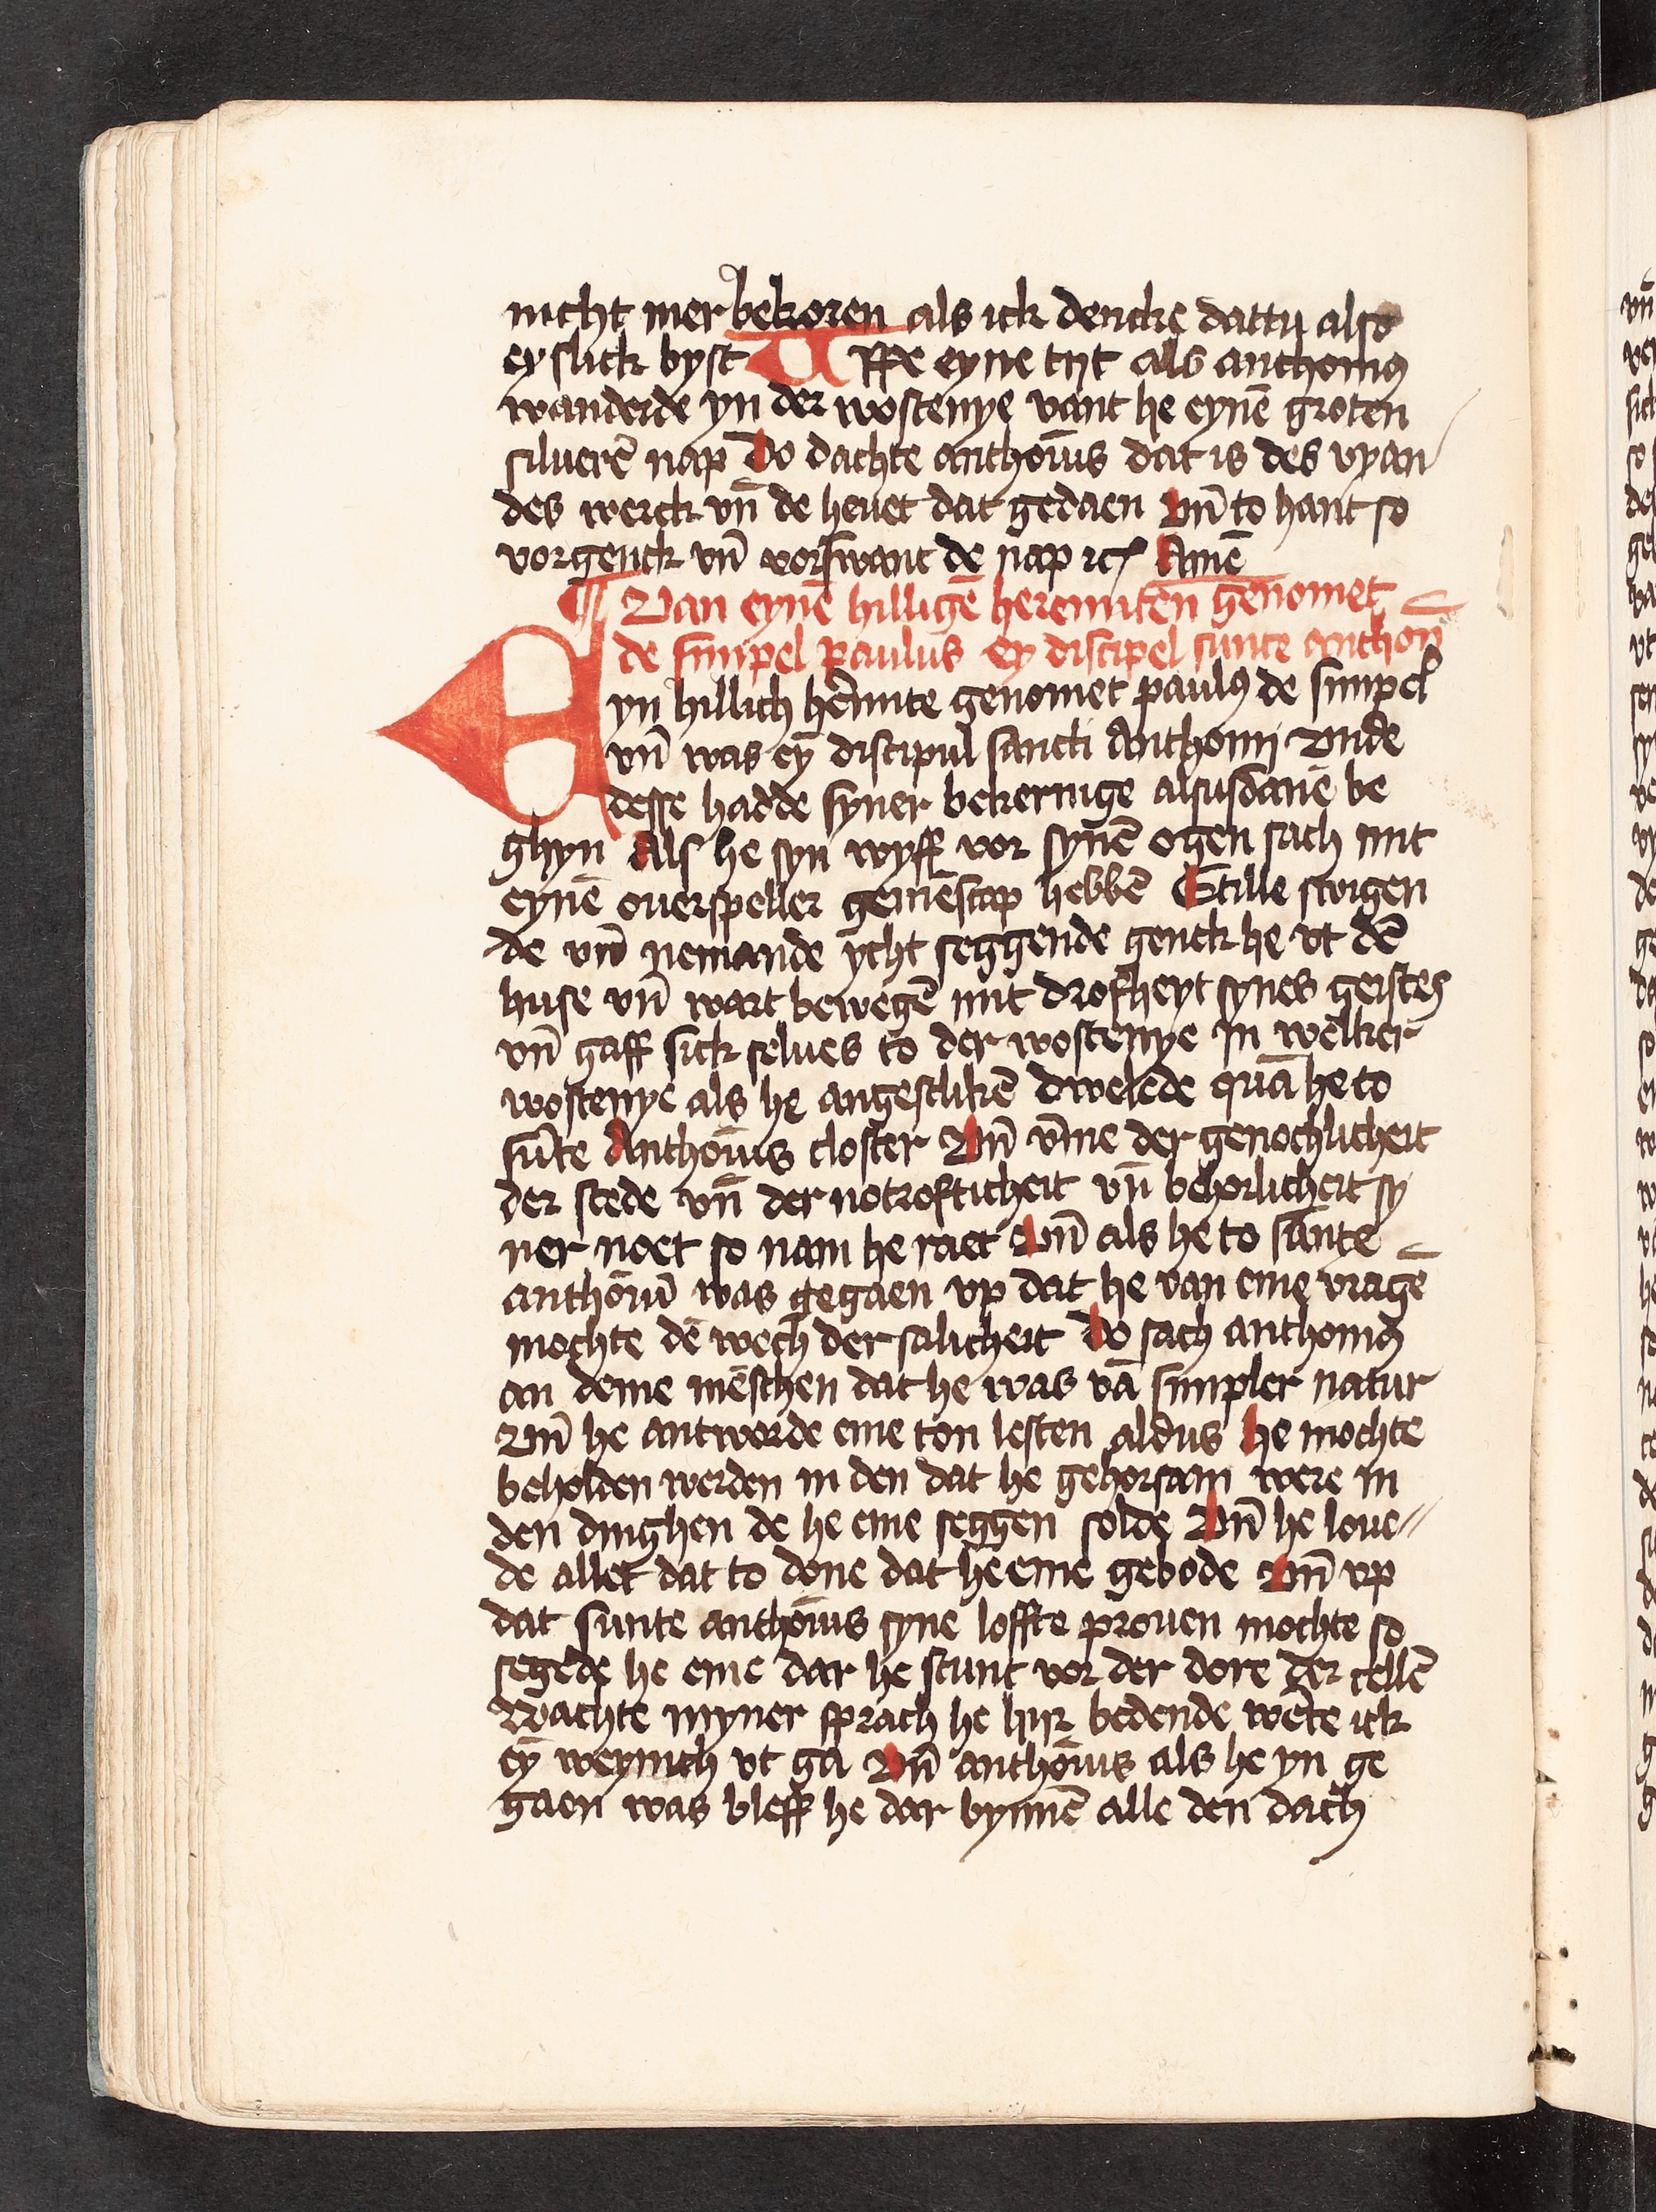 nicht mer bekoren als ick dencke dattu also
eyslick byst Uppe eyne tijt als anthoniꝰ
wanderde yn der wostenye vant he eynē groten
siluerē nap Do dachte anthoīus dat is des vyan
des werck vn̄ de heuet dat gedaen Vn̄ to hant so
vorgenck vn̄ vorswant de nap ꝛc Amē
¶ Van eynē hilligē heremiten genomet
de simpel paulus ey discipel sunte anthon
Eyn hillich hērmite genomet paulꝰ de simpel
vn̄ was ey discipul sancti Anthonij Vnde
desse hadde syner bekernige alsusdanē be
ghyn Als he syn wyff vor synē ogen sach mit
eynē ouerspeller gemēscap hebbē Stille swigen
de vn̄ nemande ycht seggende genck he vt dē
huse vn̄ wart bewegē mit drofheyt synes geistes
vn̄ gaff sick selues to der wostenye In welker
wostenye als he angestlikē dwelēde quā he to
sūte Anthoīus closter Vn̄ v̄me der genochlicheit
der stede vn̄ der notrofticheit vn̄ behorlicheit sy
ner noet so nam he raet Vn̄ als he to sunte
anthoniū was gegaen vp dat he van eme vragē
mochte dē wech der salicheit Do sach anthoniꝰ
an deme mēschen dat he was vā simpler natur
Vn̄ he antworde eme ton lesten aldus he mochte
beholden werden in den dat he gehorsam were in
den dinghen de he eme seggen solde Vn̄ he loue
de allet dat to done dat he eme gebode Vn̄ vp
dat sunte anthoīus syne loffte prouen mochte so
segede he eme dar he stunt vor der dore der cellē
Wachte myner sprach he hijr bedende wēte ick
eȳ weynich vt ga Vn̄ anthoīus als he yn ge
gaen was bleff he dar bynnē alle den dach